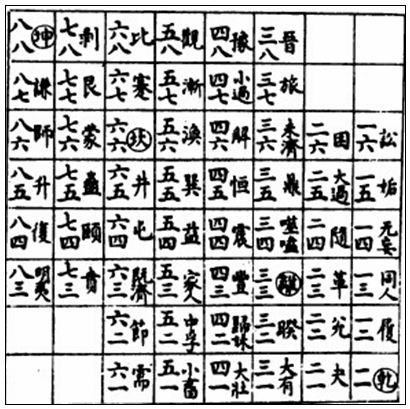 八八 坤 七八 剝 六八 比 五八 觀 四八 豫 三八 晉
八七 謙 七七 艮 六七 蹇 五七 漸 四七 小過 三七 旅
八六 師 七六 蒙 六六 坎 五六 渙 四六 解 三六 未濟 二六 困 一六 訟
八五 升 七五 蠱 六五 井 五五 巽 四五 恒 三五 鼎 二五 大過 一五 姤
八四 復 七四 頤 六四 屯 五四 益 四四 震 三四 噬嗑 二四 隨 一四 无妄
八三 明夷 七三 賁 六三 既濟 五三 家人 四三 豐 三三 離 二三 革 一三 同人
六二 節 五二 中孚 四二 歸妹 三二 睽 二二 兌 一二 履
六一 需 五一 小畜 四一 大壯 三一 大有 二一 夬 一一 乾